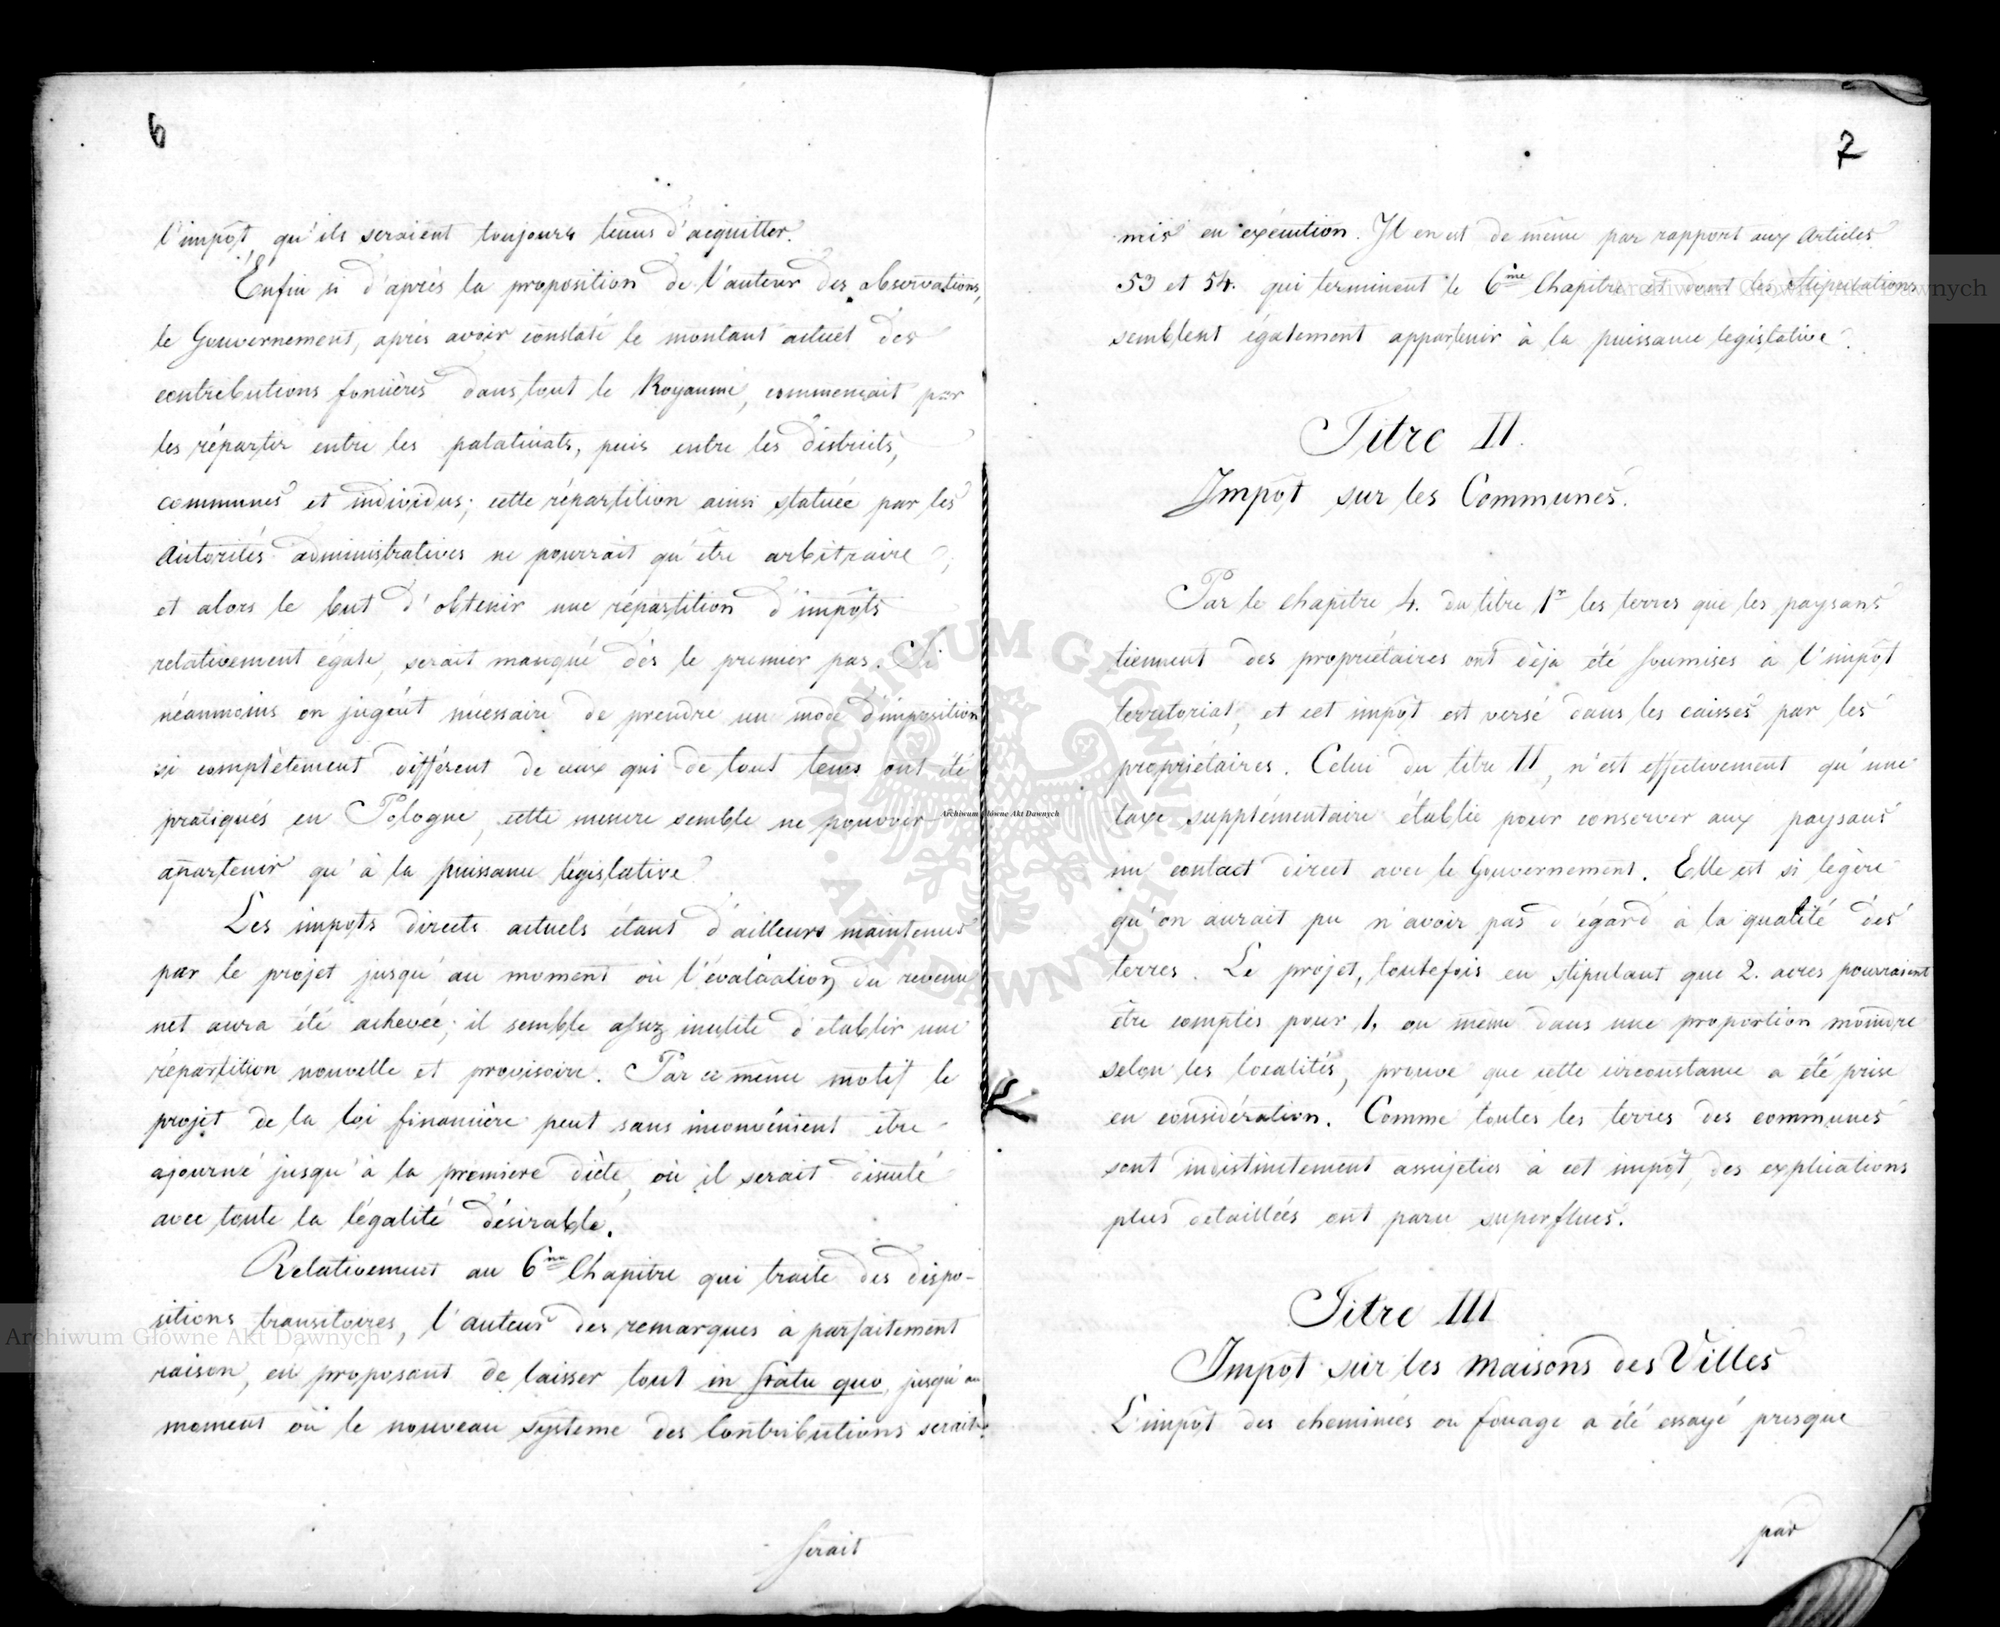 6
l'impôt, qu'ils seraient toujours tenus d'acquitter.
Enfin si d'après la proposition de l'auteur des observations,
le Gouvernement, après avoir constaté le montant actuel des
contributions foncières dans tout le Royaume, commençait par
les répartir entre les palatinats, puis entre les districts,
communes et individus; cette répartition ainsi statuée par les
Autorités administratives ne pourrait qu'être arbitraire;
et alors le but d'obtenir une répartition d'impôts
relativement égale, serait manqué dès le premier pas. Si
néanmoins on jugeât nécessaire de prendre un mode d'imposition
si complètement différent de ceux qui de tout tems ont été
pratiqués en Pologne, cette mesure semble ne pouvoir
apartenir qu'à la puissance législative.
Les impots directs actuels étant d'ailleurs maintenus
par le projet jusqu'au moment où l'évaluation du revenu
net aura été achevée; il semble assez inutile d'établir une
répartition nouvelle et provisoire. Par ce même motif le
projet de la loi financière peut sans inconvénient être
ajourné jusqu'à la première diète, où il serait discuté
avec toute la légalité désirable.
Relativement au 6me Chapitre qui traite des dispo-
sitions transitoires, l'auteur des remarques a parfaitement
raison, en proposant de laisser tout in statu quo, jusqu'au
moment où le nouveau système des Contributions serait
serait
7
mis en exécution. Il en est de même par rapport aux Articles
53 et 54. qui terminent le 6me Chapitre et dont les stipulations
semblent également appartenir à la puissance législative.
Titre II.
Impôt sur les Communes.
Par le chapitre 4. du titre 1r les terres que les paysans
tiennent des propriétaires ont déja été soumises à l'impôt
territorial, et cet impôt est versé dans les caisses par les
propriétaires. Celui du titre II, n'est effectivement qu'une
taxe supplémentaire établie pour conserver aux paysans
un contact direct avec le Gouvernement. Elle est si légère
qu'on aurait pu n'avoir pas d'égard à la qualité des
terres. Le projet, toutefois en stipulant que 2. acres pourraient
être comptés pour 1. ou même dans une proportion moindre
selon les localités, prouve que cette circonstance a été prise
en considération. Comme toutes les terres des communes
sont indistinctement assujeties à cet impôt, des explications
plus détaillées ont paru superflues.
Titre III
Impôt sur les maisons des Villes
L'impôt des cheminées ou fouage a été essayé presque
par
Archiwum Główne Akt Dawnych
Archiwum Główne Akt Dawnych
Archiwum Główne Akt Dawnych
ARCHIWUM GŁÓWNE AKT DAWNYCH